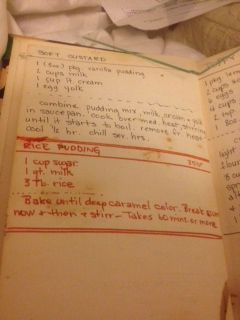 SOFT CUSTARD
1 (3oz) pkg vanilla pudding
2 cups milk
1 cup lt. cream
1 egg yolk
combine pudding mix, milk, cream & yolk
in saucepan. cook over med heat stirring
until it starts to boil. remove fr heat
cool ½ hr. chill sev. hrs.
RICE PUDDING 350°
1 cup sugar
1 qt. milk
3 tb. rice
Bake until deep caramel color. Break
now & then & stirr - Takes 60 mins or more
1 pkg
2 cups
eggs
4 cups
2 tsp